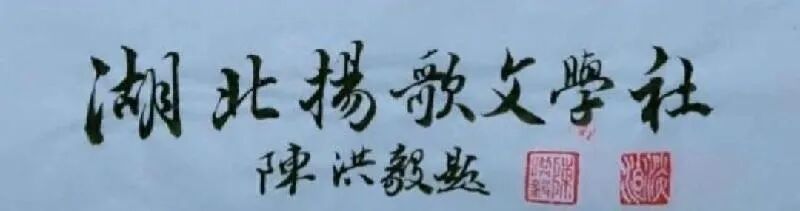 湖北揚歌文學社
陳洪毅題